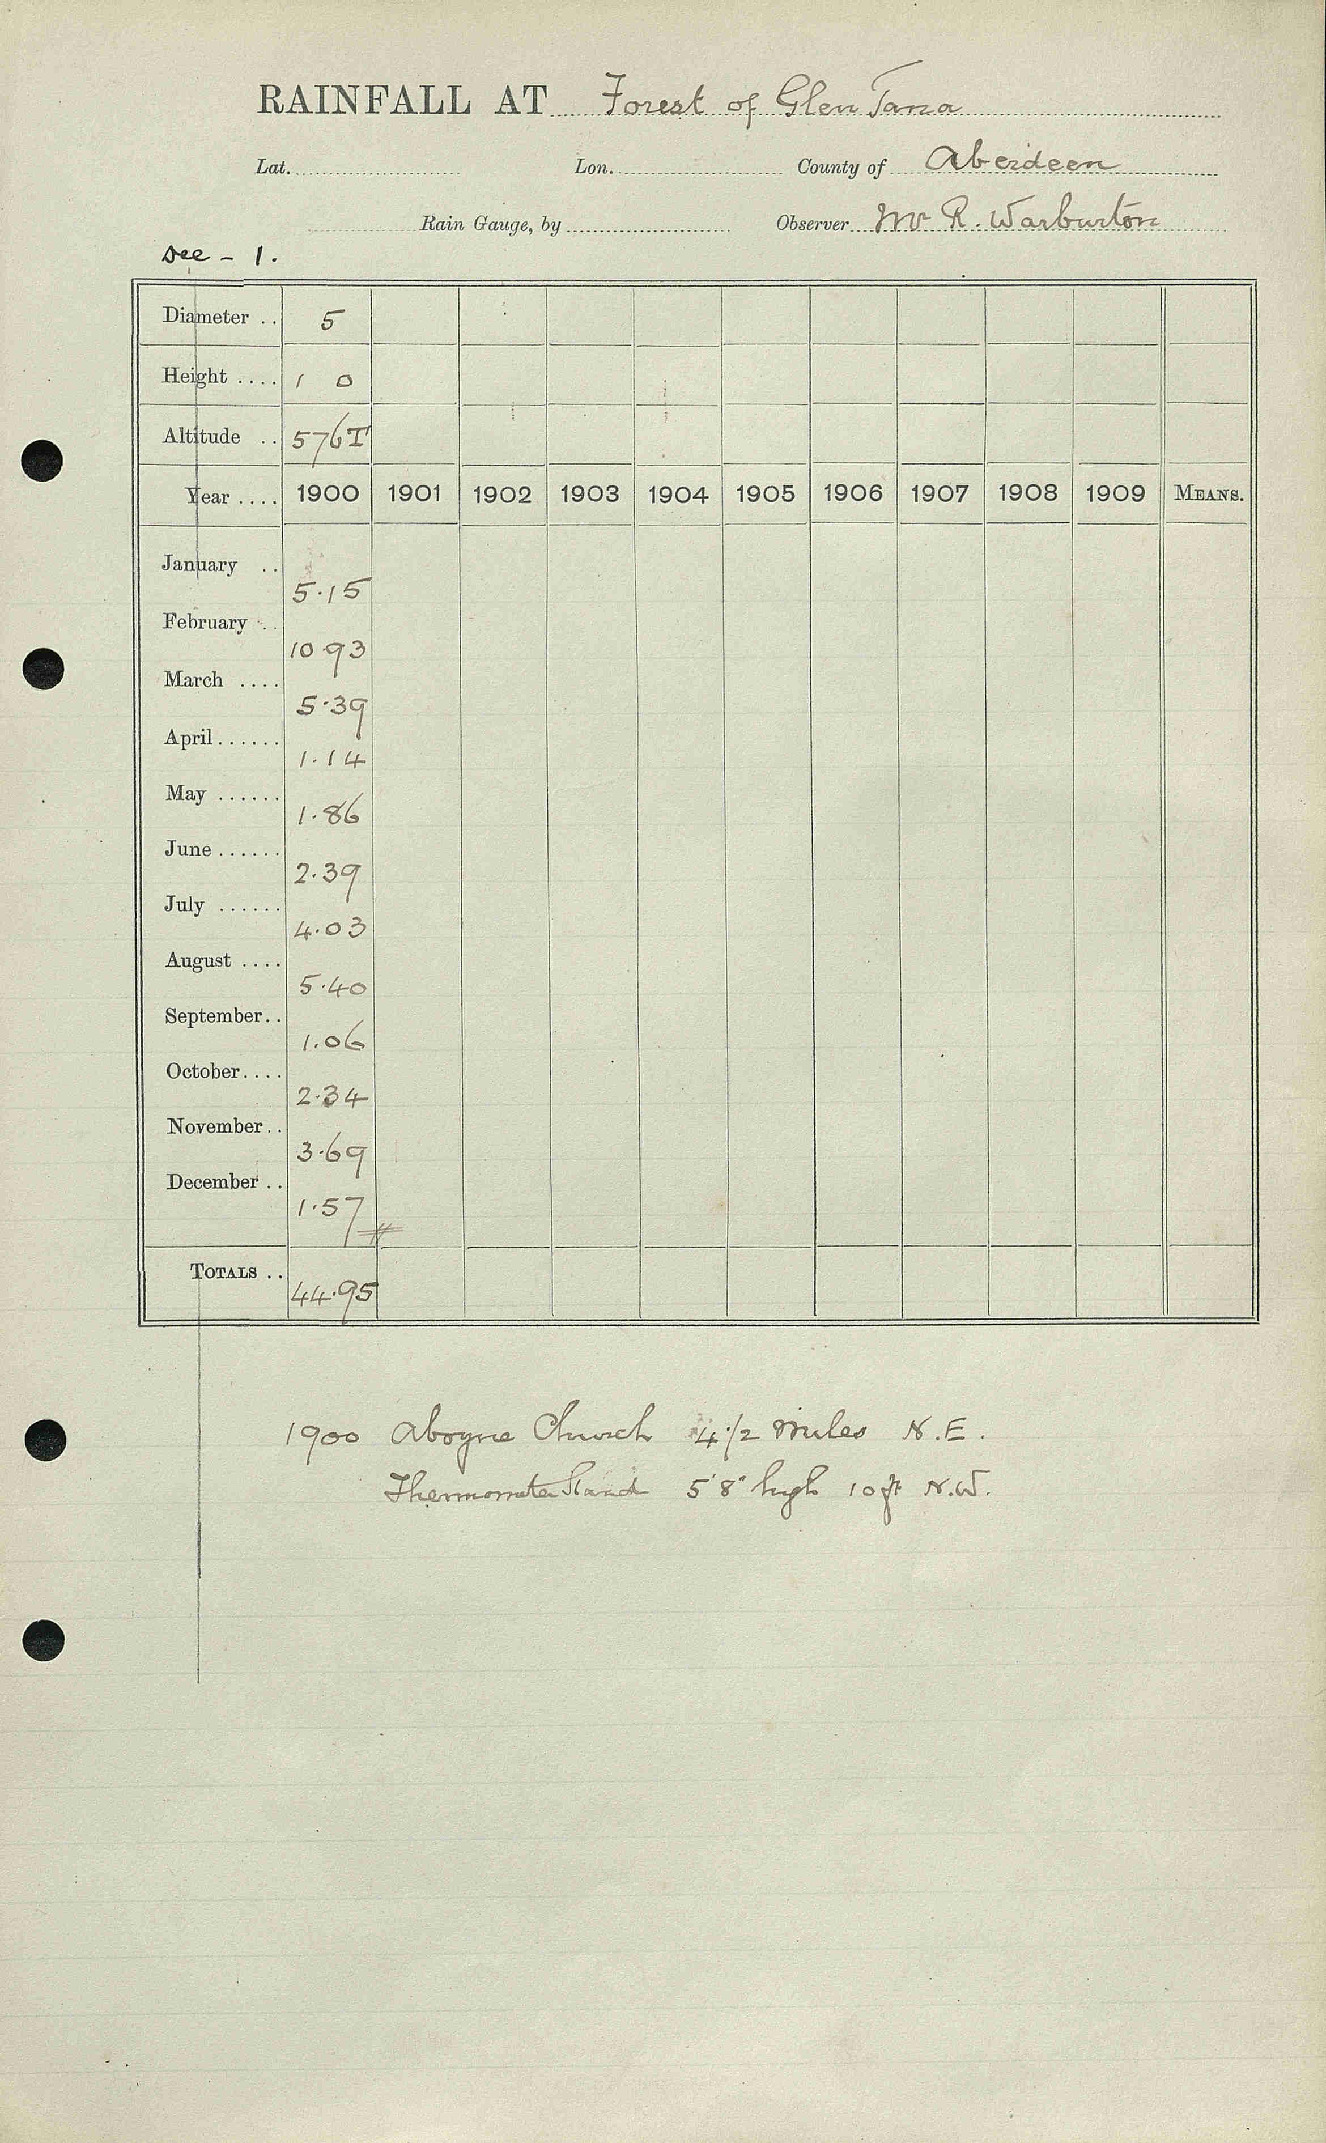 RAINFALL AT Forest of Glen Tana
Lat. Lon. County of Aberdeen
Rain Gauge, by Observer Mr R. Warburton
Dee - 1.
Diameter .. 5
Height .... 1 0
Altitude .. 576T
Year .... 1900 1901 1902 1903 1904 1905 1906 1907 1908 1909 MEANS.
January .. 5.15
February .. 10.93
March .... 5.39
April ...... 1.14
May ...... 1.86
June ...... 2.39
July ...... 4.03
August .... 5.40
September .. 1.06
October .... 2.34
November .. 3.69
December .. 1.57
TOTALS .. 44.95
1900 Aboyne Church 4 1/2 miles N.E.
Thermometer Stand 5' 8" high 10 ft N.W.